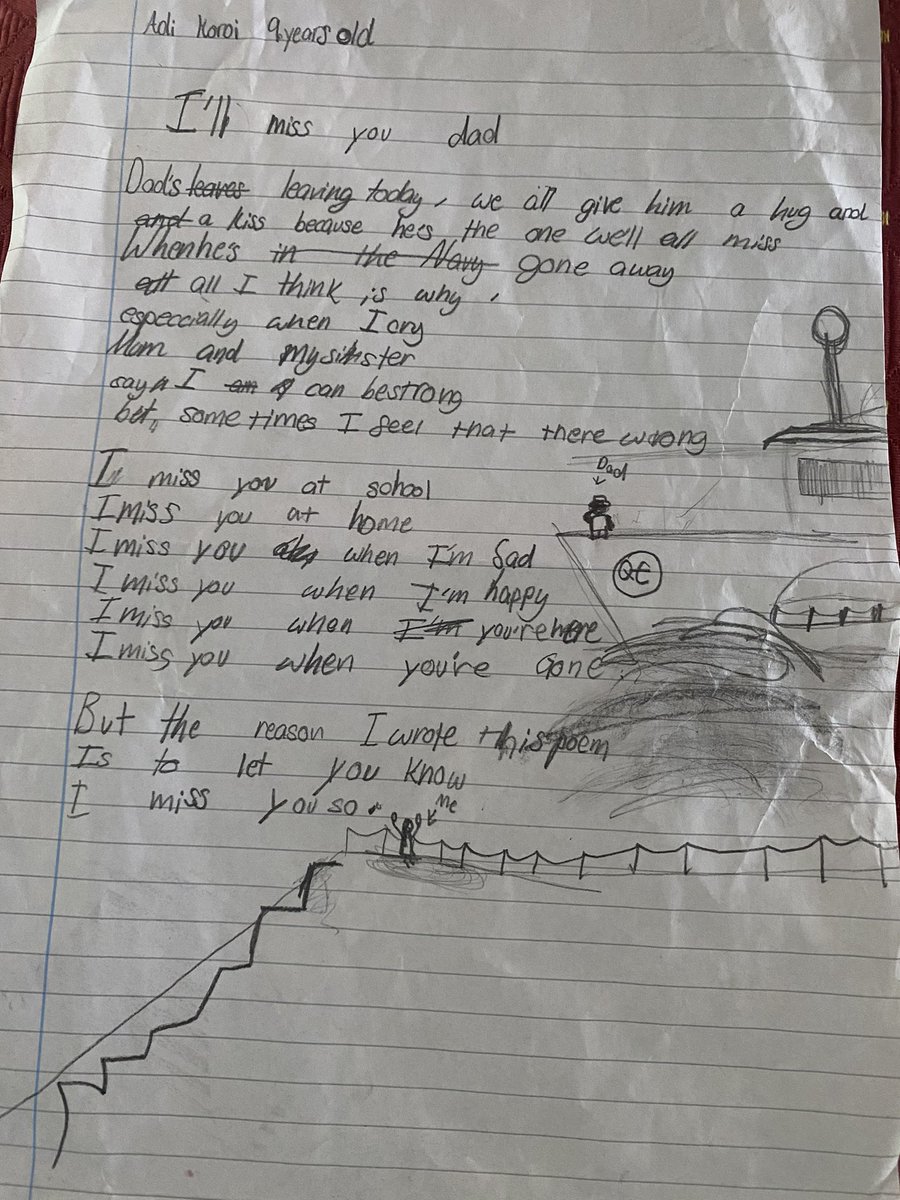 Adi Koroi 9 years old
I'll miss you dad
Dad's leaves leaving today, we all give him a hug and
and a kiss because hees the one well all miss
When he's in the Navy gone away
all all I think is why,
especcially when I cry
Mum and my sinster
say I am can be strong
but, sometimes I feel that there wrong
I miss you at school
I miss you at home
I miss you when I'm Sad
I miss you when I'm happy
I miss you when I'm you're here
I miss you when you're Gone.
But the reason I wrote this poem
Is to let you know
I miss you so.
Dad
QE
Me